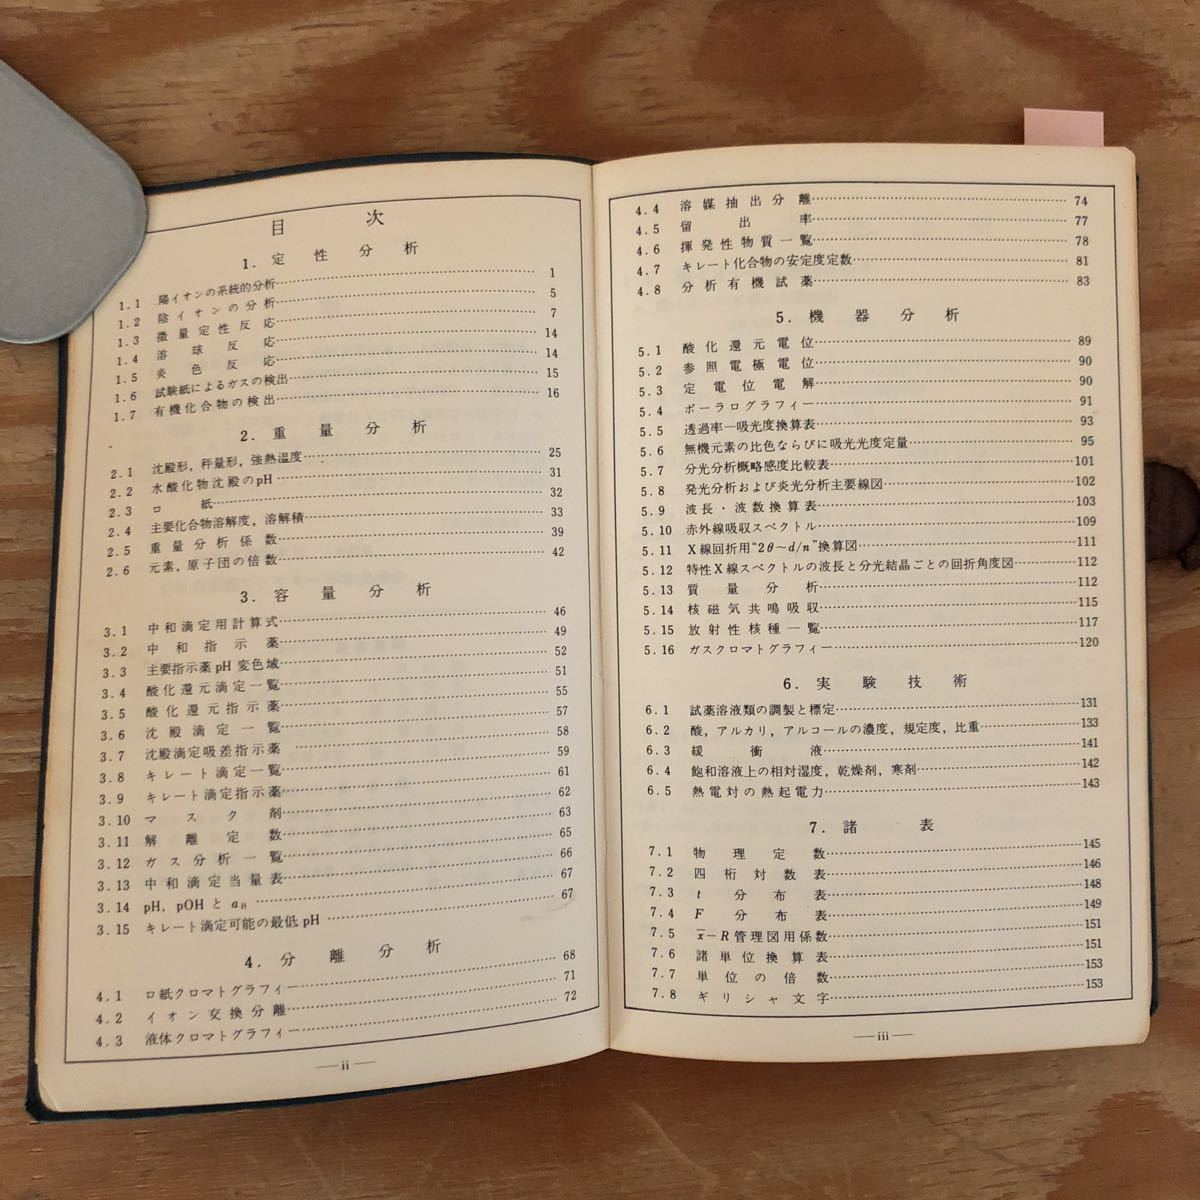 目次
1. 定性分析
1.1 陽イオンの系統的分析 1
1.2 陰イオンの分析 5
1.3 微量定性反応 7
1.4 溶球反応 14
1.5 炎色反応 14
1.6 試験紙によるガスの検出 15
1.7 有機化合物の検出 16
2. 重量分析
2.1 沈殿形，秤量形，強熱温度 25
2.2 水酸化物沈殿のpH 31
2.3 ロ紙 32
2.4 主要化合物溶解度，溶解積 33
2.5 重量分析係数 39
2.6 元素，原子団の倍数 42
3. 容量分析
3.1 中和滴定用計算式 46
3.2 中和指示薬 49
3.3 主要指示薬 pH 変色域 52
3.4 酸化還元滴定一覧 51
3.5 酸化還元指示薬 55
3.6 沈殿滴定一覧 57
3.7 沈殿滴定吸差指示薬 58
3.8 キレート滴定一覧 59
3.9 キレート滴定指示薬 61
3.10 マスク剤 62
3.11 解離定数 63
3.12 ガス分析一覧 65
3.13 中和滴定当量表 66
3.14 pH, pOH と αH 67
3.15 キレート滴定可能の最低 pH 67
4. 分離分析
4.1 ロ紙クロマトグラフィー 68
4.2 イオン交換分離 71
4.3 液体クロマトグラフィー 72
— ii —
4.4 溶媒抽出分離 74
4.5 留出率 77
4.6 揮発性物質一覧 78
4.7 キレート化合物の安定度定数 81
4.8 分析有機試薬 83
5. 機器分析
5.1 酸化還元電位 89
5.2 参照電極電位 90
5.3 定電位電解 90
5.4 ポーラログラフィー 91
5.5 透過率—吸光度換算表 93
5.6 無機元素の比色ならびに吸光光度定量 95
5.7 分光分析概略感度比較表 101
5.8 発光分析および炎光分析主要線図 102
5.9 波長・波数換算表 103
5.10 赤外線吸収スペクトル 109
5.11 X線回折用"2θ～d/n"換算図 111
5.12 特性X線スペクトルの波長と分光結晶ごとの回折角度図 112
5.13 質量分析 112
5.14 核磁気共鳴吸収 115
5.15 放射性核種一覧 117
5.16 ガスクロマトグラフィー 120
6. 実験技術
6.1 試薬溶液類の調製と標定 131
6.2 酸，アルカリ，アルコールの濃度，規定度，比重 133
6.3 緩衝液 141
6.4 飽和溶液上の相対湿度，乾燥剤，寒剤 142
6.5 熱電対の熱起電力 143
7. 諸表
7.1 物理定数 145
7.2 四桁対数表 146
7.3 t 分布表 148
7.4 F 分布表 149
7.5 x̄−R管理図用係数 151
7.6 諸単位換算表 151
7.7 単位の倍数 153
7.8 ギリシャ文字 153
— iii —